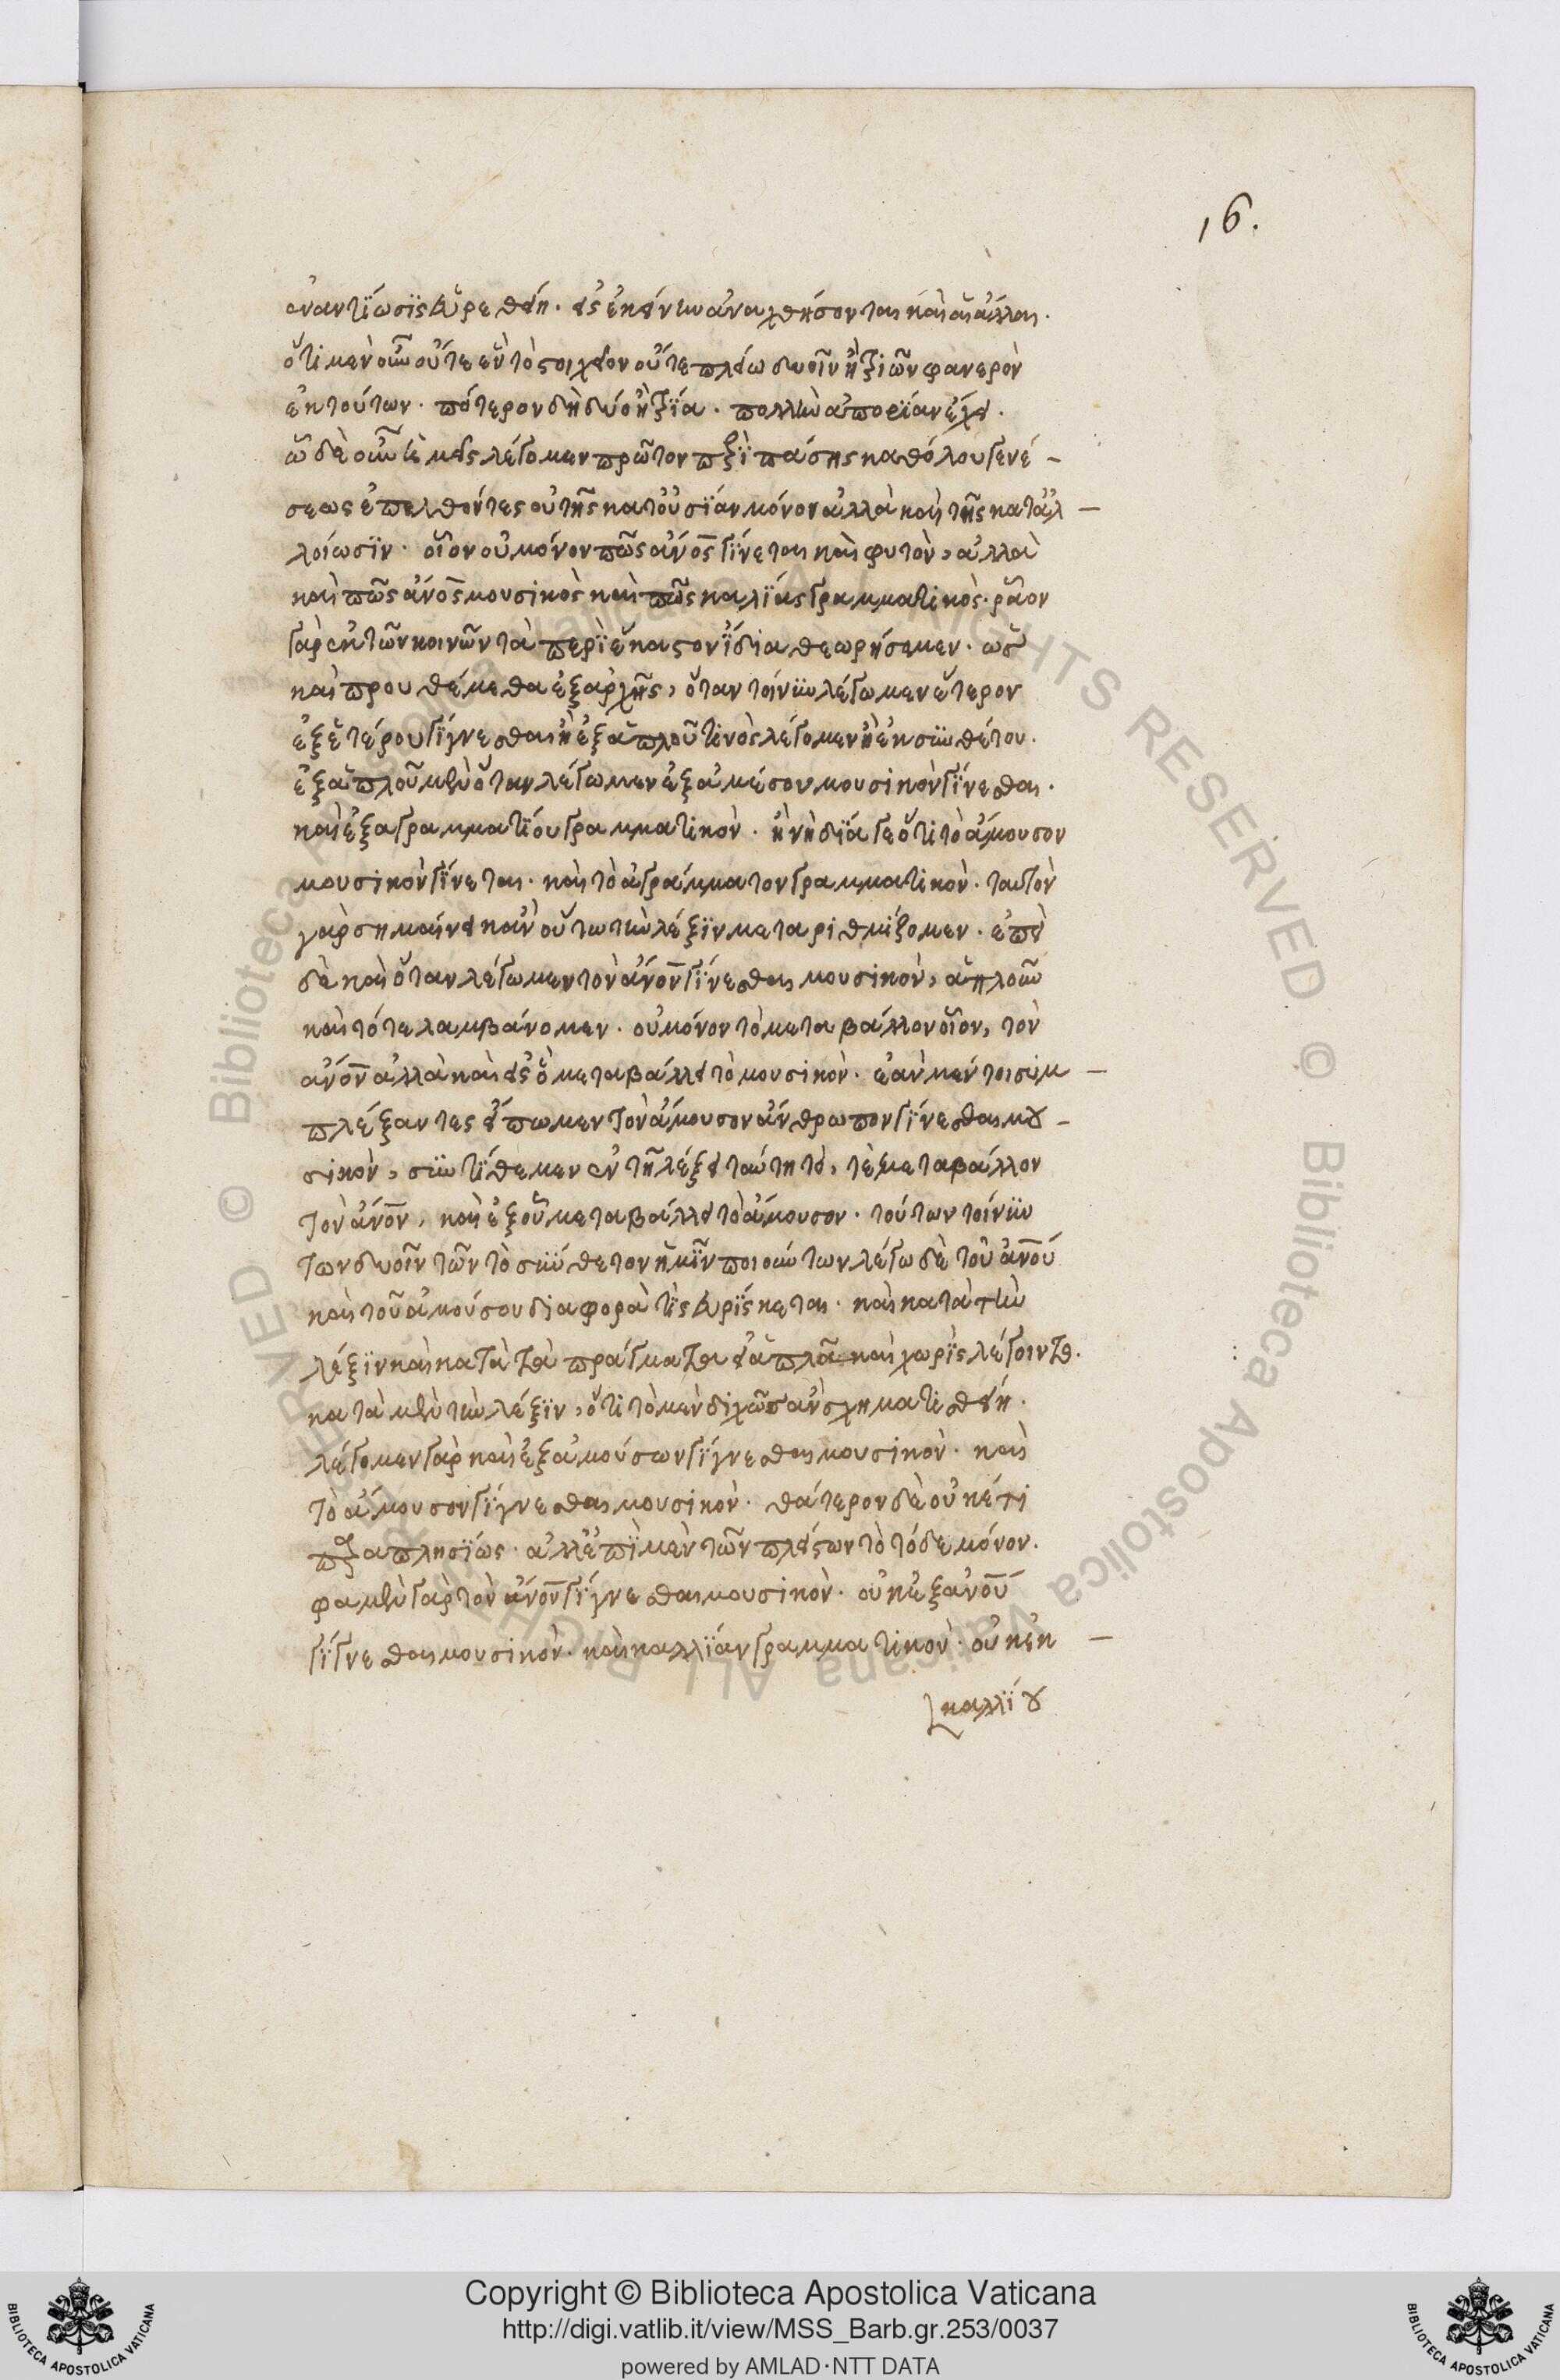 16.
ἐναντίωσϊς εὑρεθείη. εἰς ἐκείνην ἀναχθήσονται καὶ αἱ ἄλλαι.
ὅτι μὲν οὖν οὔτε ἓν τὸ στοιχεῖον οὔτε πλείω δυοῖν ἢ τριῶν φανερὸν
ἐκ τούτων. πότερον δὴ δύο ἢ τρία. πολλὴν ἀπορϊίαν ἔχει.
ὧδε οὖν ἡμεῖς λέγομεν πρῶτον περὶ πάσης καθόλου γενέ-
σεως ἐπελθόντες οὐ τῆς κατ' οὐσίαν μόνον ἀλλὰ καὶ τῆς κατ' ἀλ-
λοίωσϊν. οἷον οὐ μόνον πῶς ἄνος γίνεται καὶ φυτὸν, ἀλλὰ
καὶ πῶς ἄνος μουσικὸς καὶ πῶς καλίας γραμματικὸς. ρᾶον
γὰρ ἐκ τῶν κοινῶν τὰ περὶ ἕκαστον ἴδια θεωρήσομεν. ὡς
καὶ προυθέμεθα ἐξαρχῆς, ὅταν τοίνυν λέγωμεν ἕτερον
ἐξ ἑτέρου γίγνεσθαι ἢ ἐξ ἁπλοῦ τινὸς λέγομεν ἢ ἐκ συνθέτου.
ἐξ ἁπλοῦ μὲν ὅταν λέγωμεν ἐξ ἀμέσου μουσικὸν γίνεσθαι.
καὶ ἐξ αγραμματίου γραμματικὸν. ἢ νὴ δία γε ὅτι τὸ ἄμουσον
μουσικὸν γίνεται. καὶ τὸ ἀγράμματον γραμματικὸν. ταυτὸν
γὰρ σημαίνει κἂν οὕτω τὴν λέξϊν μεταριθμίζομεν. ἐπεὶ
δὲ καὶ ὅταν λέγωμεν τὸν ἄνον γίνεσθαι μουσικὸν, ἁπλοῦν
καὶ τότε λαμβάνομεν. οὐ μόνον τὸ μεταβάλλον οἷον, τὸν
ἄνον ἀλλὰ καὶ εἰς ὃ μεταβάλλει τὸ μουσικὸν. ἐὰν μέντοι συμ-
πλέξαντες εἴπωμεν τὸν ἄμουσον ἄνθρωπον γίνεσθαι μου-
σικὸν, συντίθεμεν ἐν τῇ λέξει ταύτῃ τό, τὲ μεταβάλλον
τὸν ἄνον, καὶ ἐξ οὗ μεταβάλλει τὸ ἄμουσον. τούτων τοίνυν
τῶν δυοῖν τῶν τὸ σύνθετον ἡμῖν ποιούντων λέγω δὲ τοῦ ἄνου
καὶ τοῦ ἀμούσου διαφορὰ τὶς εὑρίσκεται. καὶ κατὰ τὴν
λέξϊν καὶ κατὰ τὰ πράγματα εἰ ἁπλᾶ καὶ χωρὶς λέγοιντο.
κατὰ μὲν τὴν λέξϊν, ὅτι τὸ μὲν διχῶς ἂν σχηματισθείη.
λέγομεν γὰρ καὶ ἐξ ἀμούσων γίγνεσθαι μουσικὸν. καὶ
τὸ ἄμουσον γίγνεσθαι μουσικὸν. θάτερον δὲ οὐκέτι
παραπλησίως. ἀλλ' ἐπὶ μὲν τῶν πλείστων τὸ τόδε μόνον.
φαμὲν γὰρ τὸν ἄνον γίγνεσθαι μουσικὸν. οὐκ ἐξ ἄνου
γίγνεσθαι μουσικὸν. καὶ καλλίαν γραμματικὸν. οὐκ ἐκ -
καλλίου
© Biblioteca Apostolica Vaticana ALL RIGHTS RESERVED
Copyright © Biblioteca Apostolica Vaticana
http://digi.vatlib.it/view/MSS_Barb.gr.253/0037
powered by AMLAD·NTT DATA
BIBLIOTECA APOSTOLICA VATICANA
BIBLIOTECA APOSTOLICA VATICANA